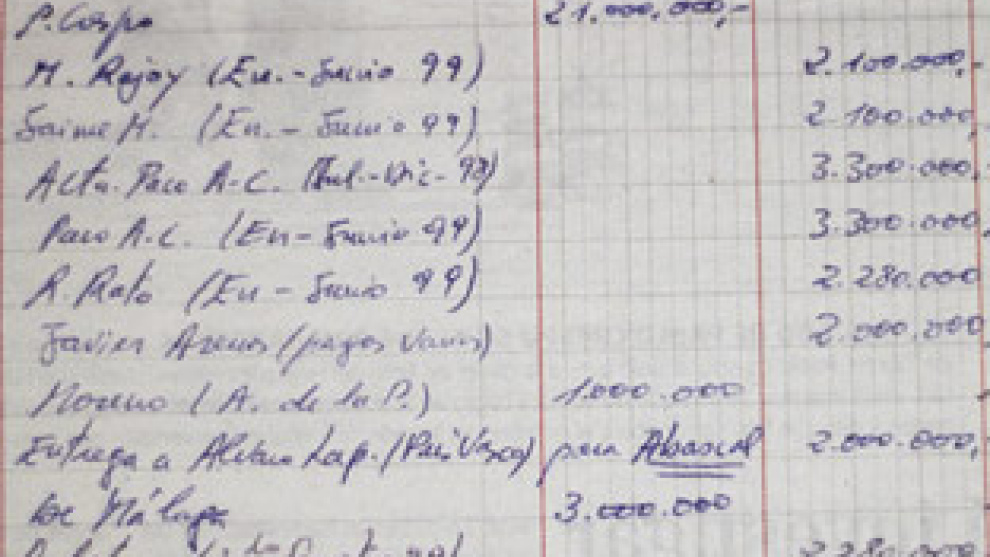 P. Crespo 21.000.000,-
M. Rajoy (En.-Junio 99) 2.100.000,-
Jaime M. (En.- Junio 99) 2.100.000,
Acta. Paco A-C. (Jul.-Dic-98) 3.300.000,
Paco A.C. (En-Junio 99) 3.300.000,
R. Rato (En-Junio 99) 2.280.000
Javier Arenas (pagos varios) 2.000.000
Moreno (A. de la P.) 1.000.000
Entrega a Alvaro Lap. (País Vasco) para Abascal 2.000.000,
de Málaga 3.000.000
2.280.000